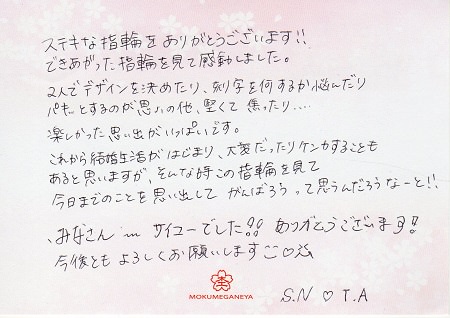 ステキな指輪をありがとうございます!!
できあがった指輪を見て感動しました。
2人でデザインを決めたり、刻字を何するか悩んだり
パキッとするのが思いの他、堅くて焦ったり....
楽しかった思い出がいっぱいです。
これから結婚生活がはじまり、大変だったりケンカすることも
あると思いますが、そんな時この指輪を見て
今日までのことを思い出して がんばろう って思うんだろうなーと!!
みなさん サイコーでした!! ありがとうございます!
今後とも よろしくお願いします♡
MOKUMEGANEYA
S.N ♡ T.A